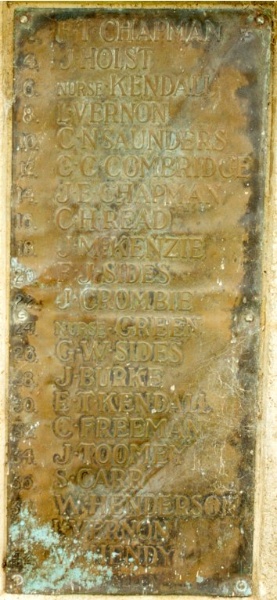 CHAPMAN
4. J HOLST
6. NURSE KENDALL
8. VERNON
10. C·N·SAUNDERS
12. G·G·COMBRIDGE
14. J·E·CHAPMAN
16. C·H·READ
18. J·McKENZIE
J·SIDES
J·CROMBIE
24. NURSE·GREEN
26. G·W·SIDES
28. J·BURKE
30. E·T·KENDALL
C·FREEMAN
J·TOOMEY
S·CARR
W·HENDERSON
VERNON
HENDY